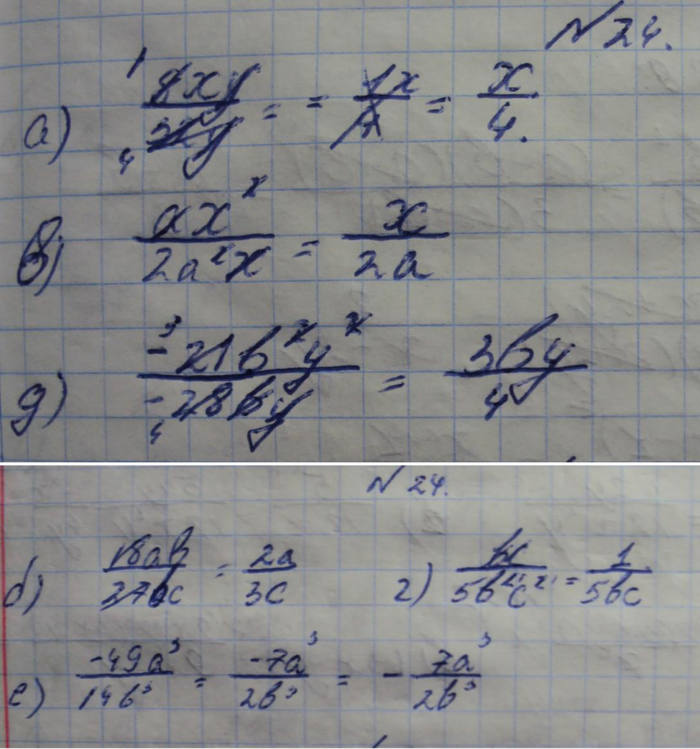 № 24.
а) 8xy / 32y = = 1x / 4 = x / 4.
в) ax² / 2a²x = x / 2a
д) -21b²y² / -28by = 3by / 4
№ 24.
б) 18ab / 27bc = 2a / 3c г) bc / 5b²c² = 1 / 5bc
е) -49a³ / 14b³ = -7a³ / 2b³ = - 7a³ / 2b³